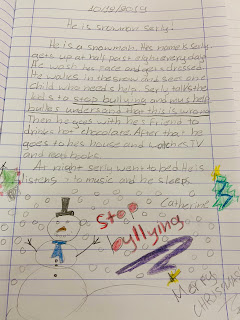 10/12/2019
He is snowman Serly.
He is a snowman. His name is Serly.
gets up at half past eight every day.
He wash his face and gets dressed.
He walks in the snow and see one
child who needs help. Serly talks the
kids to stop bullying and
bullies understand that this is wrong.
Then he goes with he's friend to
drinks hot chocolate. After that he
goes to his house and watches TV
and read books.
At night serly went to bed. He is
listens to music and he sleeps.
Catherine
stop
byllying
Merry
CHRISTMAS